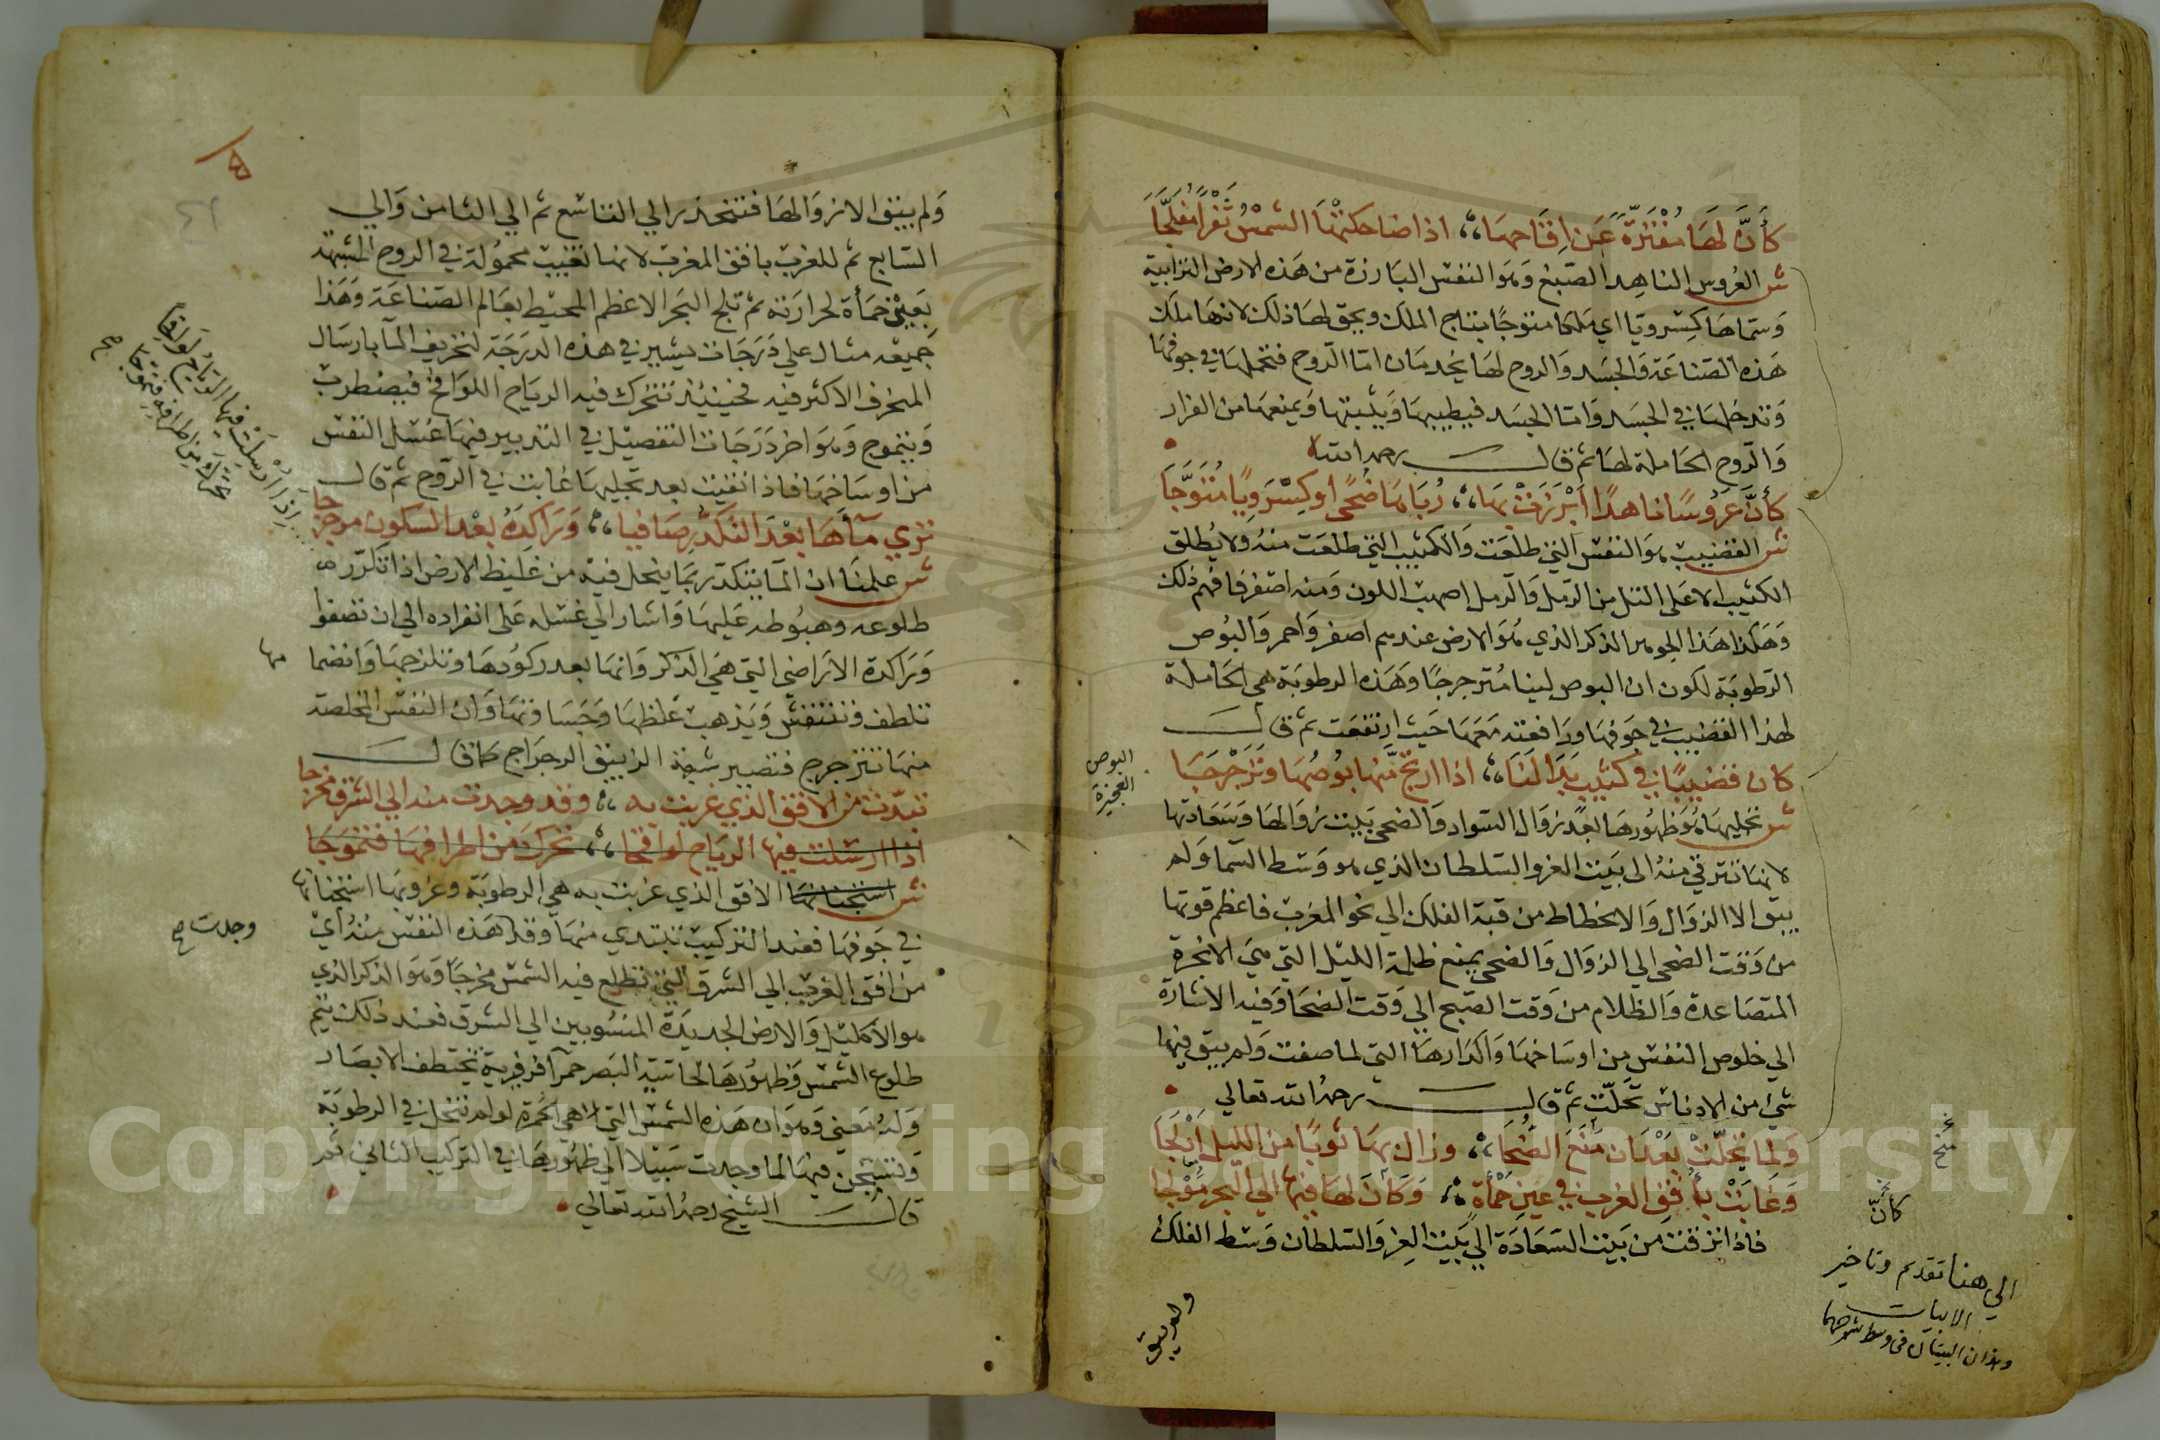 كأنَّ لَهَا مُفْتَرَّةً عَن اِقَاحهَا، اذا ضاحكتْهَا الشمسُ ثَغْرًا مُفَلَّجَا
ش العروس الناهد الصبغ وهو النفس البارزة من هذه الارض الترابية
وسماها كسرويا اي ملكا متوجا بتاج الملك ويحق لها ذلك لانها ملك
هذه الصناعة والجسد والروح لها يخدمان اما الروح فتحملها في جوفها
وتدخلها في الجسد واما الجسد فيطيبها ويثبتها ويمنعها من الفرار
والروح الحاملة لها ثم قال رحمه الله
كأنَّ عَرُوسًا ناهدًا أبْرَزَتْ بهَا، رُبَاهَا ضُحًى او كِسْرَوِيًا مُتَوَّجَا
ش القضيب هو النفس التي طلعت والكثيب التي طلعت منه ولا يطلق
الكثيب الا على التل من الرمل والرمل اصهب اللون ومنه اصفر فافهم ذلك
وهكذا هذا الجوهر الذكر الذي هو الارض عندهم اصفر واحمر والبوص
الرطوبة لكون ان البوص لينا مترجرجا وهذه الرطوبة هي الحاملة
لهذا القضيب في جوفها ورافعته معها حيث ارتفعت ثم قال
كان قضيبًا في كثيب بَدَا لَنَا، اذا ارتجّ منها بُوصُهَا وتَرَجْرَجَا
ش تجليها هو ظهورها بعد زوال السواد والضحى بيت زوالها وسعادتها
لانها تترقي منه الى بيت العز والسلطان الذي هو وسط السما ولم
يبق الا الزوال والانحطاط من قبة الفلك الي نحو المغرب فاعظم قوتها
من وقت الضحى الي الزوال والضحى يمنع ظلمة الليل التي هي الابخرة
المتصاعدة والظلام من وقت الصبح الي وقت الضحا وفيه الاشارة
الي خلوص النفس من اوساخها واكدارها التي لما صفت ولم يبق فيها
شيء من الادناس تجلّت ثم قال رحمه الله تعالي
وَلما تجلّتْ بَعْدَ ان مَتَعَ الضُّحَا، وزال بهَا ثوبًا من الليل أدْلجَا
وَغَابَتْ بأُفق الغرب في عين حَمْأة، وَكأنَ لها فيها الي البحر مَوْلجَا
فاذا نزقت من بيت السعادة الي بيت العز والسلطان وسط الفلك
ولم يبق
البوص
العجيزة
متع
كأنّ
الي هنا تقديم وتاخير
الابيات
وهذان البيتان في وسط شرحهما
ولم يبق الا زوالها فتنحدر الي التاسع ثم الي الثامن والي
السابع ثم للغرب بافق المغرب لانها تغيب محمولة في الروح المشبهة
بعين حمأة لحرارته ثم تلج البحر الاعظم المحيط بعالم الصناعة وهذا
جميعه مثال علي درجات يشير في هذه الدرجة لتخريف المآ بارسال
المنحرف الاكثر فيه فحينئذ تتحرك فيه الرياح اللواقح فيضطرب
ويتموج وهو اخر درجات التفصيل في التدبير فيها غسل النفس
من اوساخها فاذا نقيت بعد تجليها غابت في الروح ثم قال
تري مآهَا بَعْدَ التكدُّرِ صَافيا، وَرَاكدَهُ بعْد السكون مرجرجا
ش علمنا ان المآ يتكدر بما ينحل فيه من غليظ الارض اذا تكرر
طلوعه وهبوطه عليها واشار الي غسله على انفراده الي ان تصفوا
وراكدة الاراضي التي هي الذكر وانها بعد ركودها وتلزجها وانضما
مها
تلطف وتنتفش ويذهب غلظها وجساوتها وان النفس المخلصة
منها تترجرج فتصير شبه الزيبق الرجراج كما قال
تبدّت من الافق الذي غربت به، وقد وجدت منه الي الشرق مخرجا
اذا ارسلت فيها الرياح لواقحا، تحرك من اطرافها فتموجا
ش استجنانها الافق الذي غربت به هي الرطوبة وغروبها استجنانها
في جوفها فعند التركيب تبتدي منها وقد هذه النفس منه اي
وجدت صح
من افق الغرب الي الشرق التي تطلع فيه الشمس مخرجا وهو الذكر الذي
هو الاكليل والارض الجديدة المنسوبين الي الشرق فعند ذلك يتم
طلوع الشمس وظهورها لحاسة البصر حمرآ فرفيرية تختطف الابصار
وله معني وهو ان هذه الشمس التي هي الحمرة لو لم تنحل في الرطوبة
وتستجن فيها لما وجدت سبيلا الي ظهورها في التركيب الثاني ثم
قال الشيخ رحمه الله تعالي
اذا أرسلت فيها الرياح لواقحا
تحرك من اطرافه فتموجا صح
Copyright © King Saud University